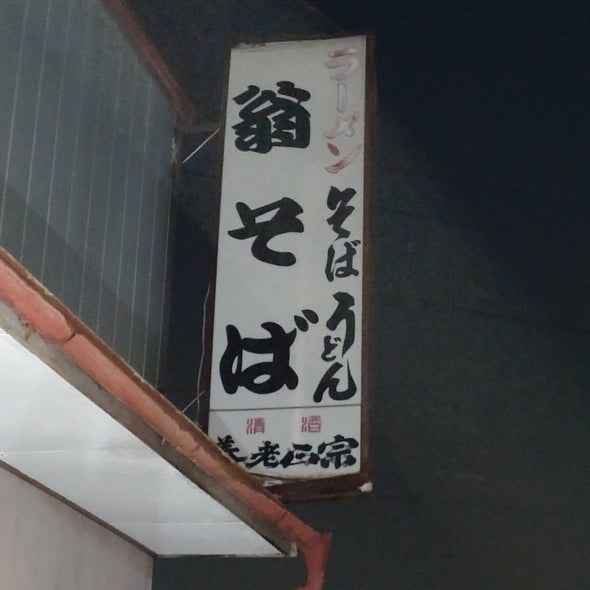 ラーメン
そば
うどん
翁そば
清酒
養老正宗